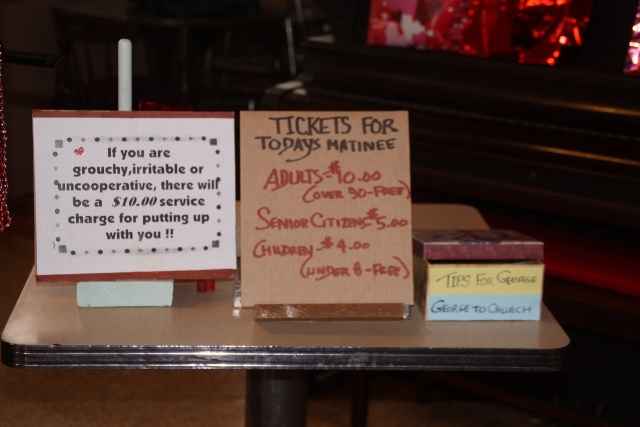 If you are
grouchy,irritable or
uncooperative, there will
be a $10.00 service
charge for putting up
with you !!
TICKETS FOR
TODAYS MATINEE
ADULTS-$10.00
(OVER 90-FREE)
SENIOR CITIZENS-$5.00
CHILDREN-$4.00
(UNDER 8-FREE)
TIPS FOR GEORGE
GEORGE TO CHURCH